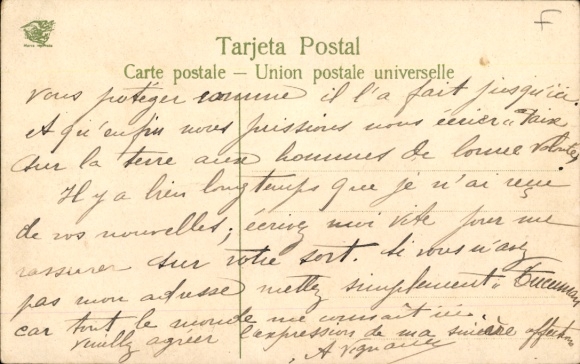 F
Tarjeta Postal
Carte postale — Union postale universelle
vous protéger comme il l'a fait jusqu'ici
et qu'enfin nous puissions nous écrier "Paix
sur la terre aux hommes de bonne volonté
Il y a bien longtemps que je n'ai reçu
de vos nouvelles; écrivez moi vite pour me
rassurer sur votre sort. Si vous n'avez
pas mon adresse mettez simplement "Tucuman
car tout le monde me connaît ici.
Veuillez agréer l'expression de ma sincère affection
A Vignau